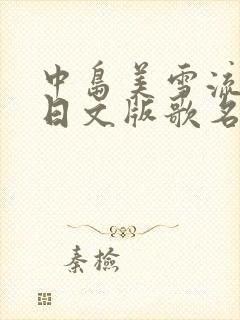 中島美雪流
日文版歌名
秦檢